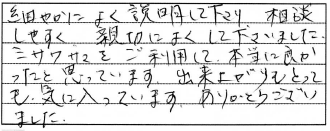 細やかによく説明して下さり 相談
しやすく 親切によくして下さいました。
ミサワサマをご利用して、本当に良か
ったと思っています。出来上がりもとって
も気に入っています。ありがとうござい
ました。